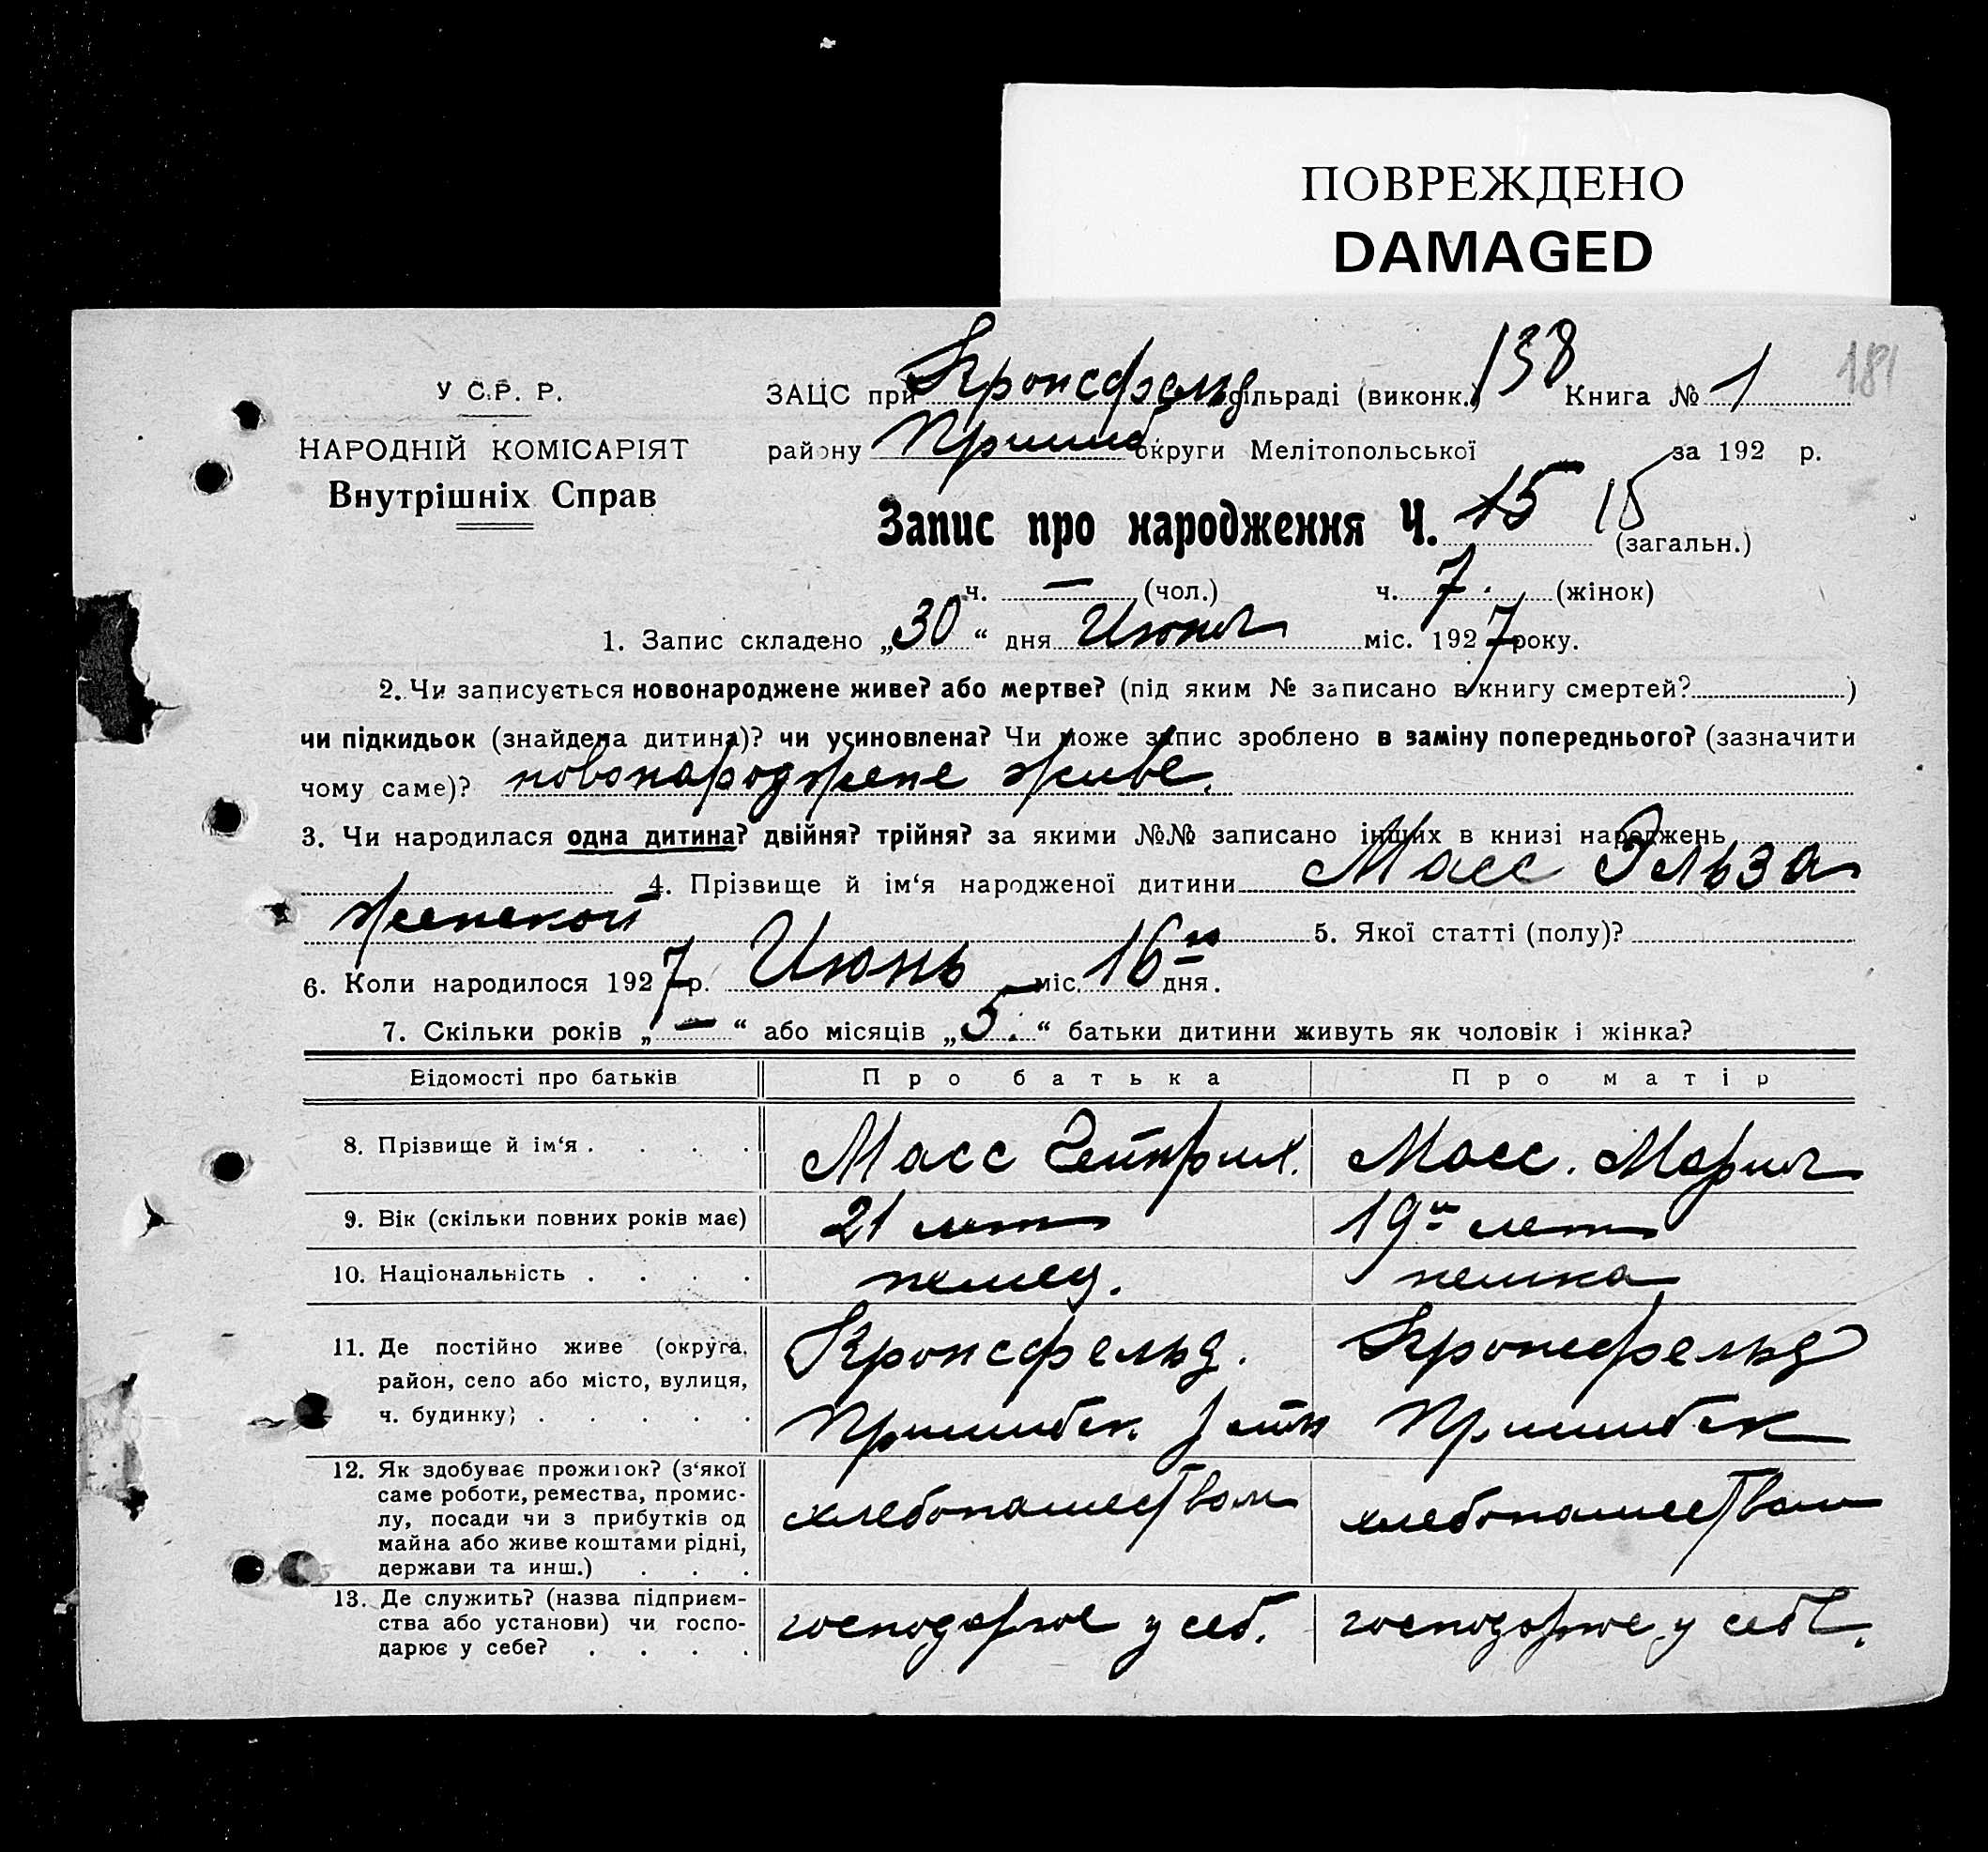 ПОВРЕЖДЕНО
DAMAGED
У С.Р. Р.
НАРОДНІЙ КОМІСАРІЯТ
Внутрішніх Справ
ЗАЦС при Кронсфельд сільраді (виконк.) 138 Книга № 1 181
району Пришиб округи Мелітопольської за 192 р.
Запис про народження Ч. 15 15
(загальн.)
ч. — (чол.) ч. 7. (жінок)
1. Запис складено „30“ дня Июня міс. 1927 року.
2. Чи записується новонароджене живе? або мертве? (під яким № записано в книгу смертей? )
чи підкидьок (знайдена дитина)? чи усиновлена? Чи може запис зроблено в заміну попереднього? (зазначити
чому саме)? новонароджене живе.
3. Чи народилася одна дитина? двійня? трійня? за якими №№ записано інших в книзі народжень
4. Прізвище й ім‘я народженої дитини Масс Эльза
женской 5. Якої статті (полу)?
6. Коли народилося 1927 р. Июнь міс. 16го дня.
7. Скільки років „—“ або місяців „5.“ батьки дитини живуть як чоловік і жінка?
Відомості про батьків Про батька Про матір
8. Прізвище й ім‘я . . . . Масс Гейнрих. Масс. Мария
9. Вік (скільки повних років має) 21 лет 19и лет
10. Національність . . . . немец. немка
11. Де постійно живе (округа, Кронсфельд. Кронсфельд
район, село або місто, вулиця,
ч. будинку) . . . . . Пришибск. Пришибск
12. Як здобуває прожиток? (з‘якої
саме роботи, ремества, промис-
лу, посади чи з прибутків од хлебопашеством хлебопашеством
майна або живе коштами рідні,
держави та инш.) . . .
13. Де служить? (назва підприєм-
ства або установи) чи госпо- господарює у себ. господарює у себе.
дарює у себе? . . . .